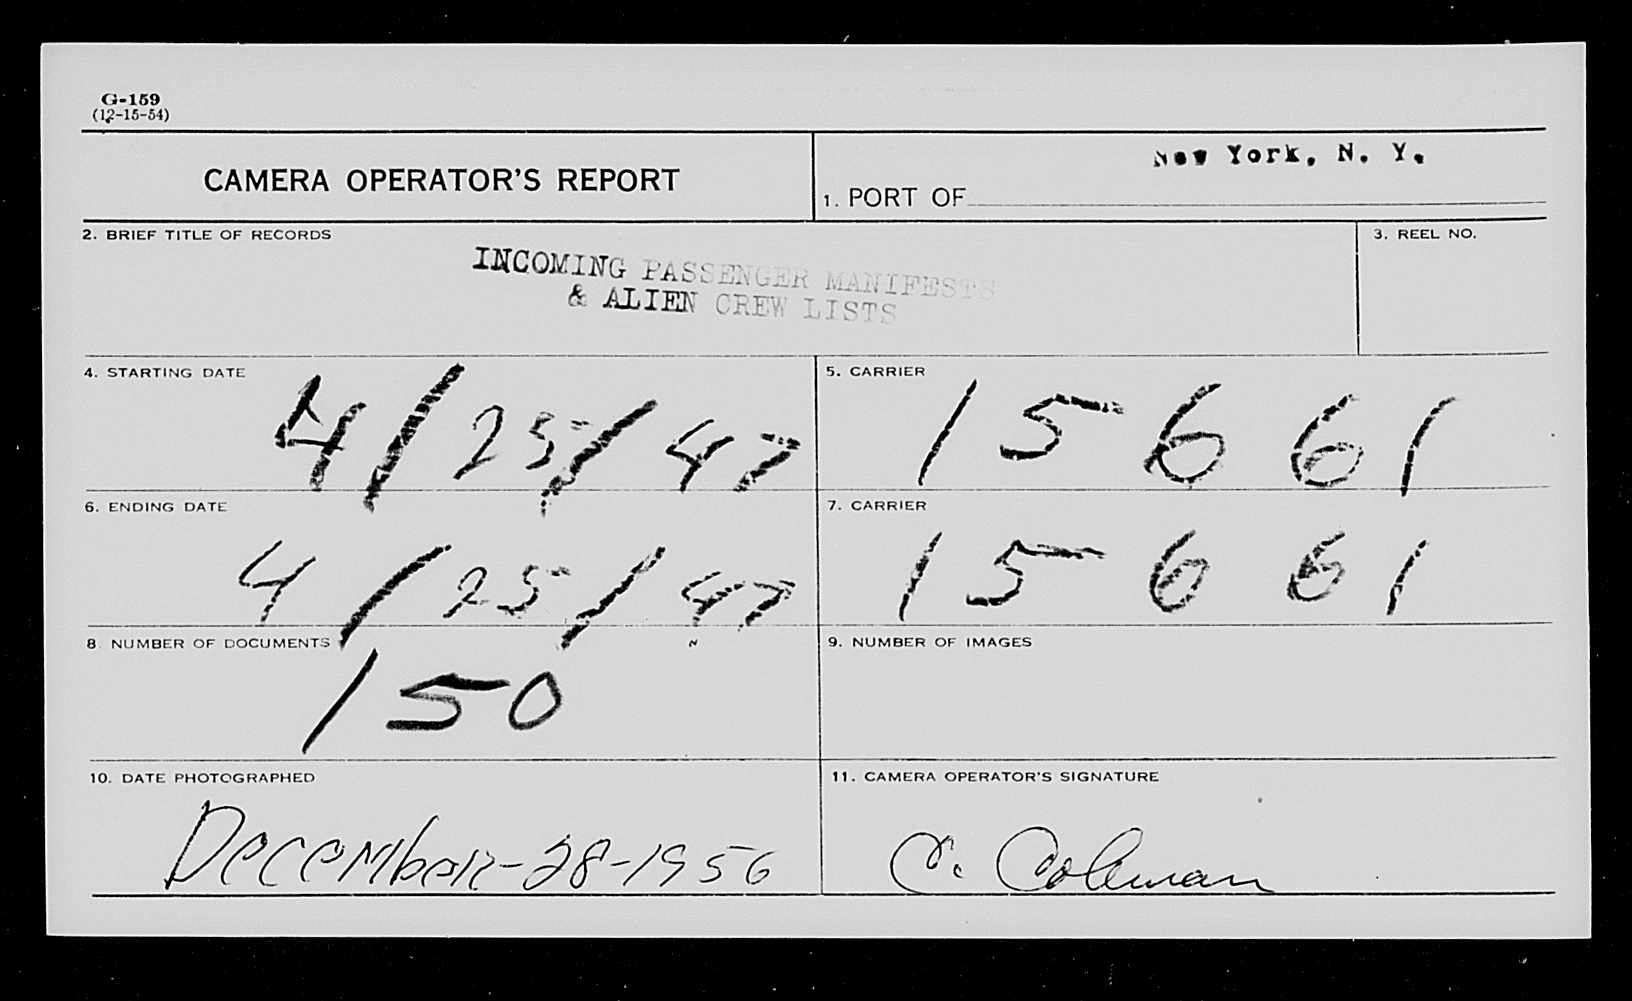 G-159
(12-15-54)
CAMERA OPERATOR'S REPORT
New York, N. Y.
1. PORT OF
2. BRIEF TITLE OF RECORDS
INCOMING PASSENGER MANIFESTS
& ALIEN CREW LISTS
3. REEL NO.
4. STARTING DATE
4/25/47
5. CARRIER
15661
6. ENDING DATE
4/25/47
7. CARRIER
15661
8. NUMBER OF DOCUMENTS
150
9. NUMBER OF IMAGES
10. DATE PHOTOGRAPHED
December-28-1956
11. CAMERA OPERATOR'S SIGNATURE
C. Coleman